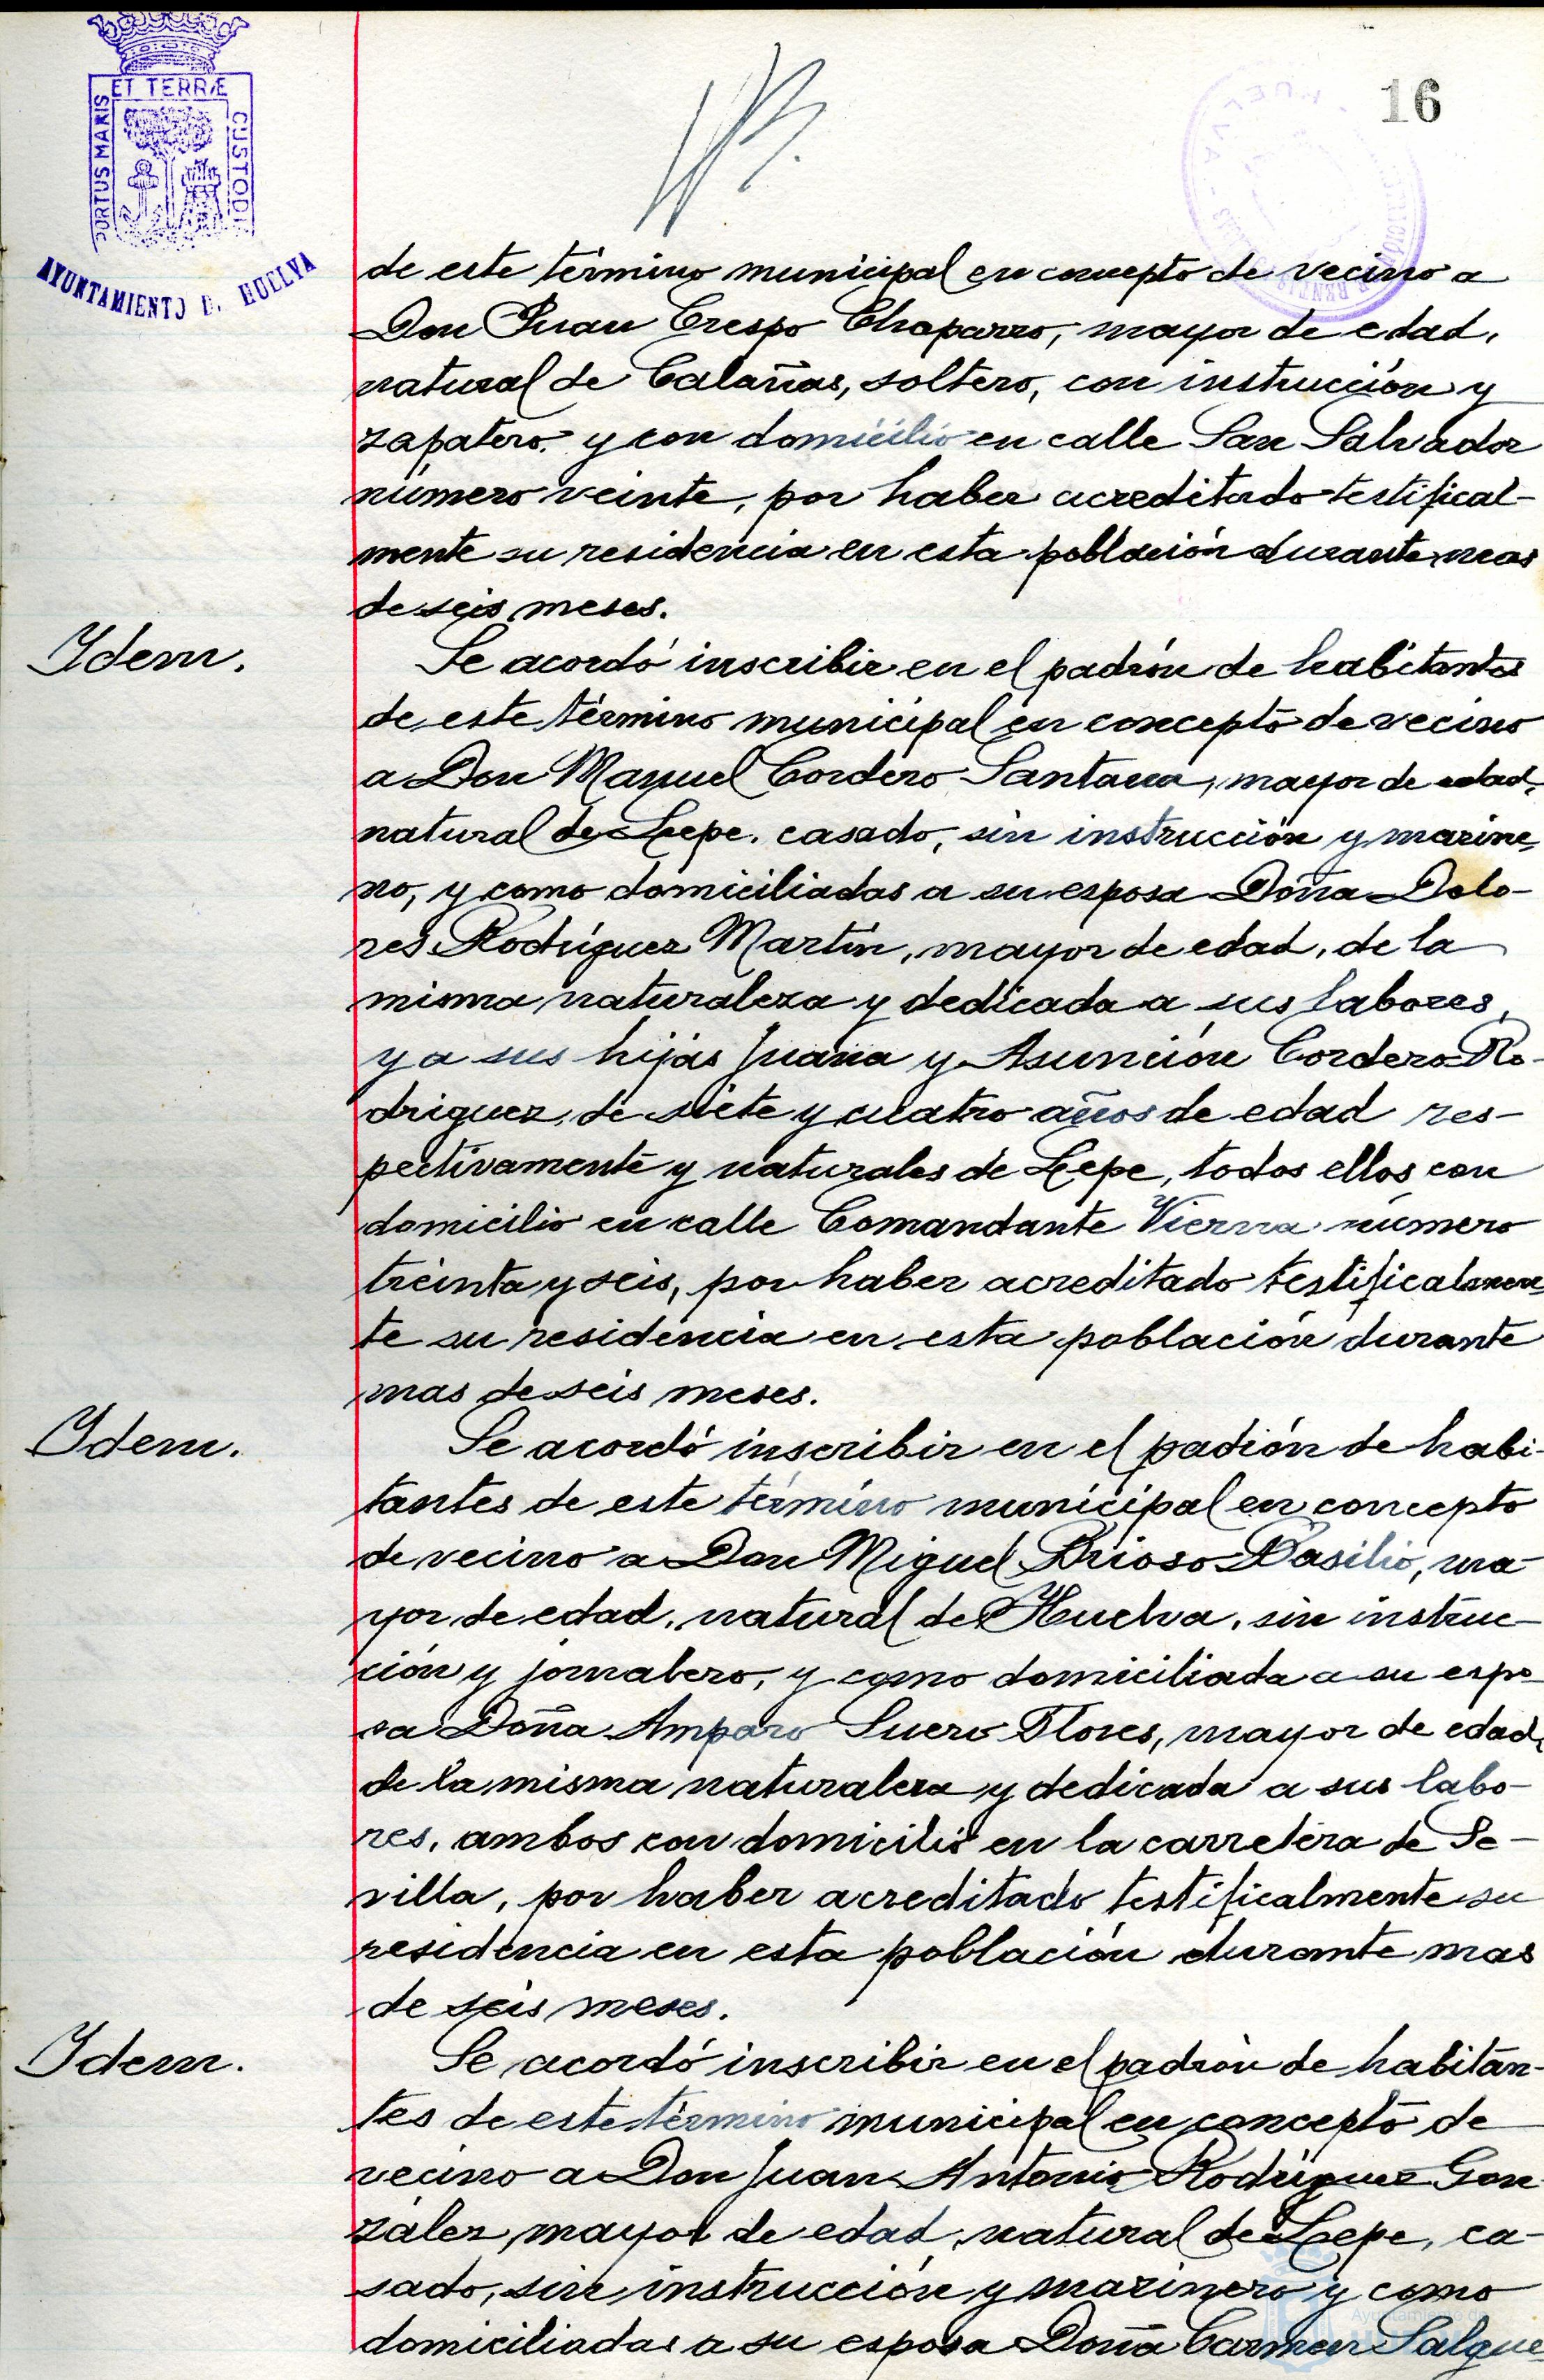 ET TERRÆ
PORTUS MARIS
CUSTODI
AYUNTAMIENTO D. HUELVA
16
de este término municipal en concepto de vecino a
Don Juan Crespo Chaparro, mayor de edad,
natural de Calañas, soltero, con instrucción y
zapatero y con domicilio en calle San Salvador
número veinte, por haber acreditado testifical-
mente su residencia en esta población durante mas
de seis meses.
Ydem.
Se acordó inscribir en el padrón de habitantes
de este término municipal en concepto de vecino
a Don Manuel Cordero Santana, mayor de edad,
natural de Lepe, casado, sin instrucción y marine-
ro, y como domiciliadas a su esposa Doña Dolo-
res Rodríguez Martín, mayor de edad, de la
misma naturaleza y dedicada a sus labores,
y a sus hijas Juana y Asunción Cordero Ro-
driguez, de siete y cuatro años de edad res-
pectivamente y naturales de Lepe, todos ellos con
domicilio en calle Comandante Vierna número
treinta y seis, por haber acreditado testificalmen-
te su residencia en esta población durante
mas de seis meses.
Ydem.
Se acordó inscribir en el padrón de habi-
tantes de este término municipal en concepto
de vecino a Don Miguel Brioso Basilio, ma-
yor de edad, natural de Huelva, sin instruc-
ción y jornalero, y como domiciliada a su espo-
sa Doña Amparo Suero Flores, mayor de edad,
de la misma naturaleza y dedicada a sus labo-
res, ambos con domicilio en la carretera de Se-
villa, por haber acreditado testificalmente su
residencia en esta población durante mas
de seis meses.
Ydem.
Se acordó inscribir en el padrón de habitan-
tes de este término municipal en concepto de
vecino a Don Juan Antonio Rodríguez Gon-
zález, mayor de edad, natural de Lepe, ca-
sado, sin instrucción y marinero y como
domiciliadas a su esposa Doña Carmen Salgue-